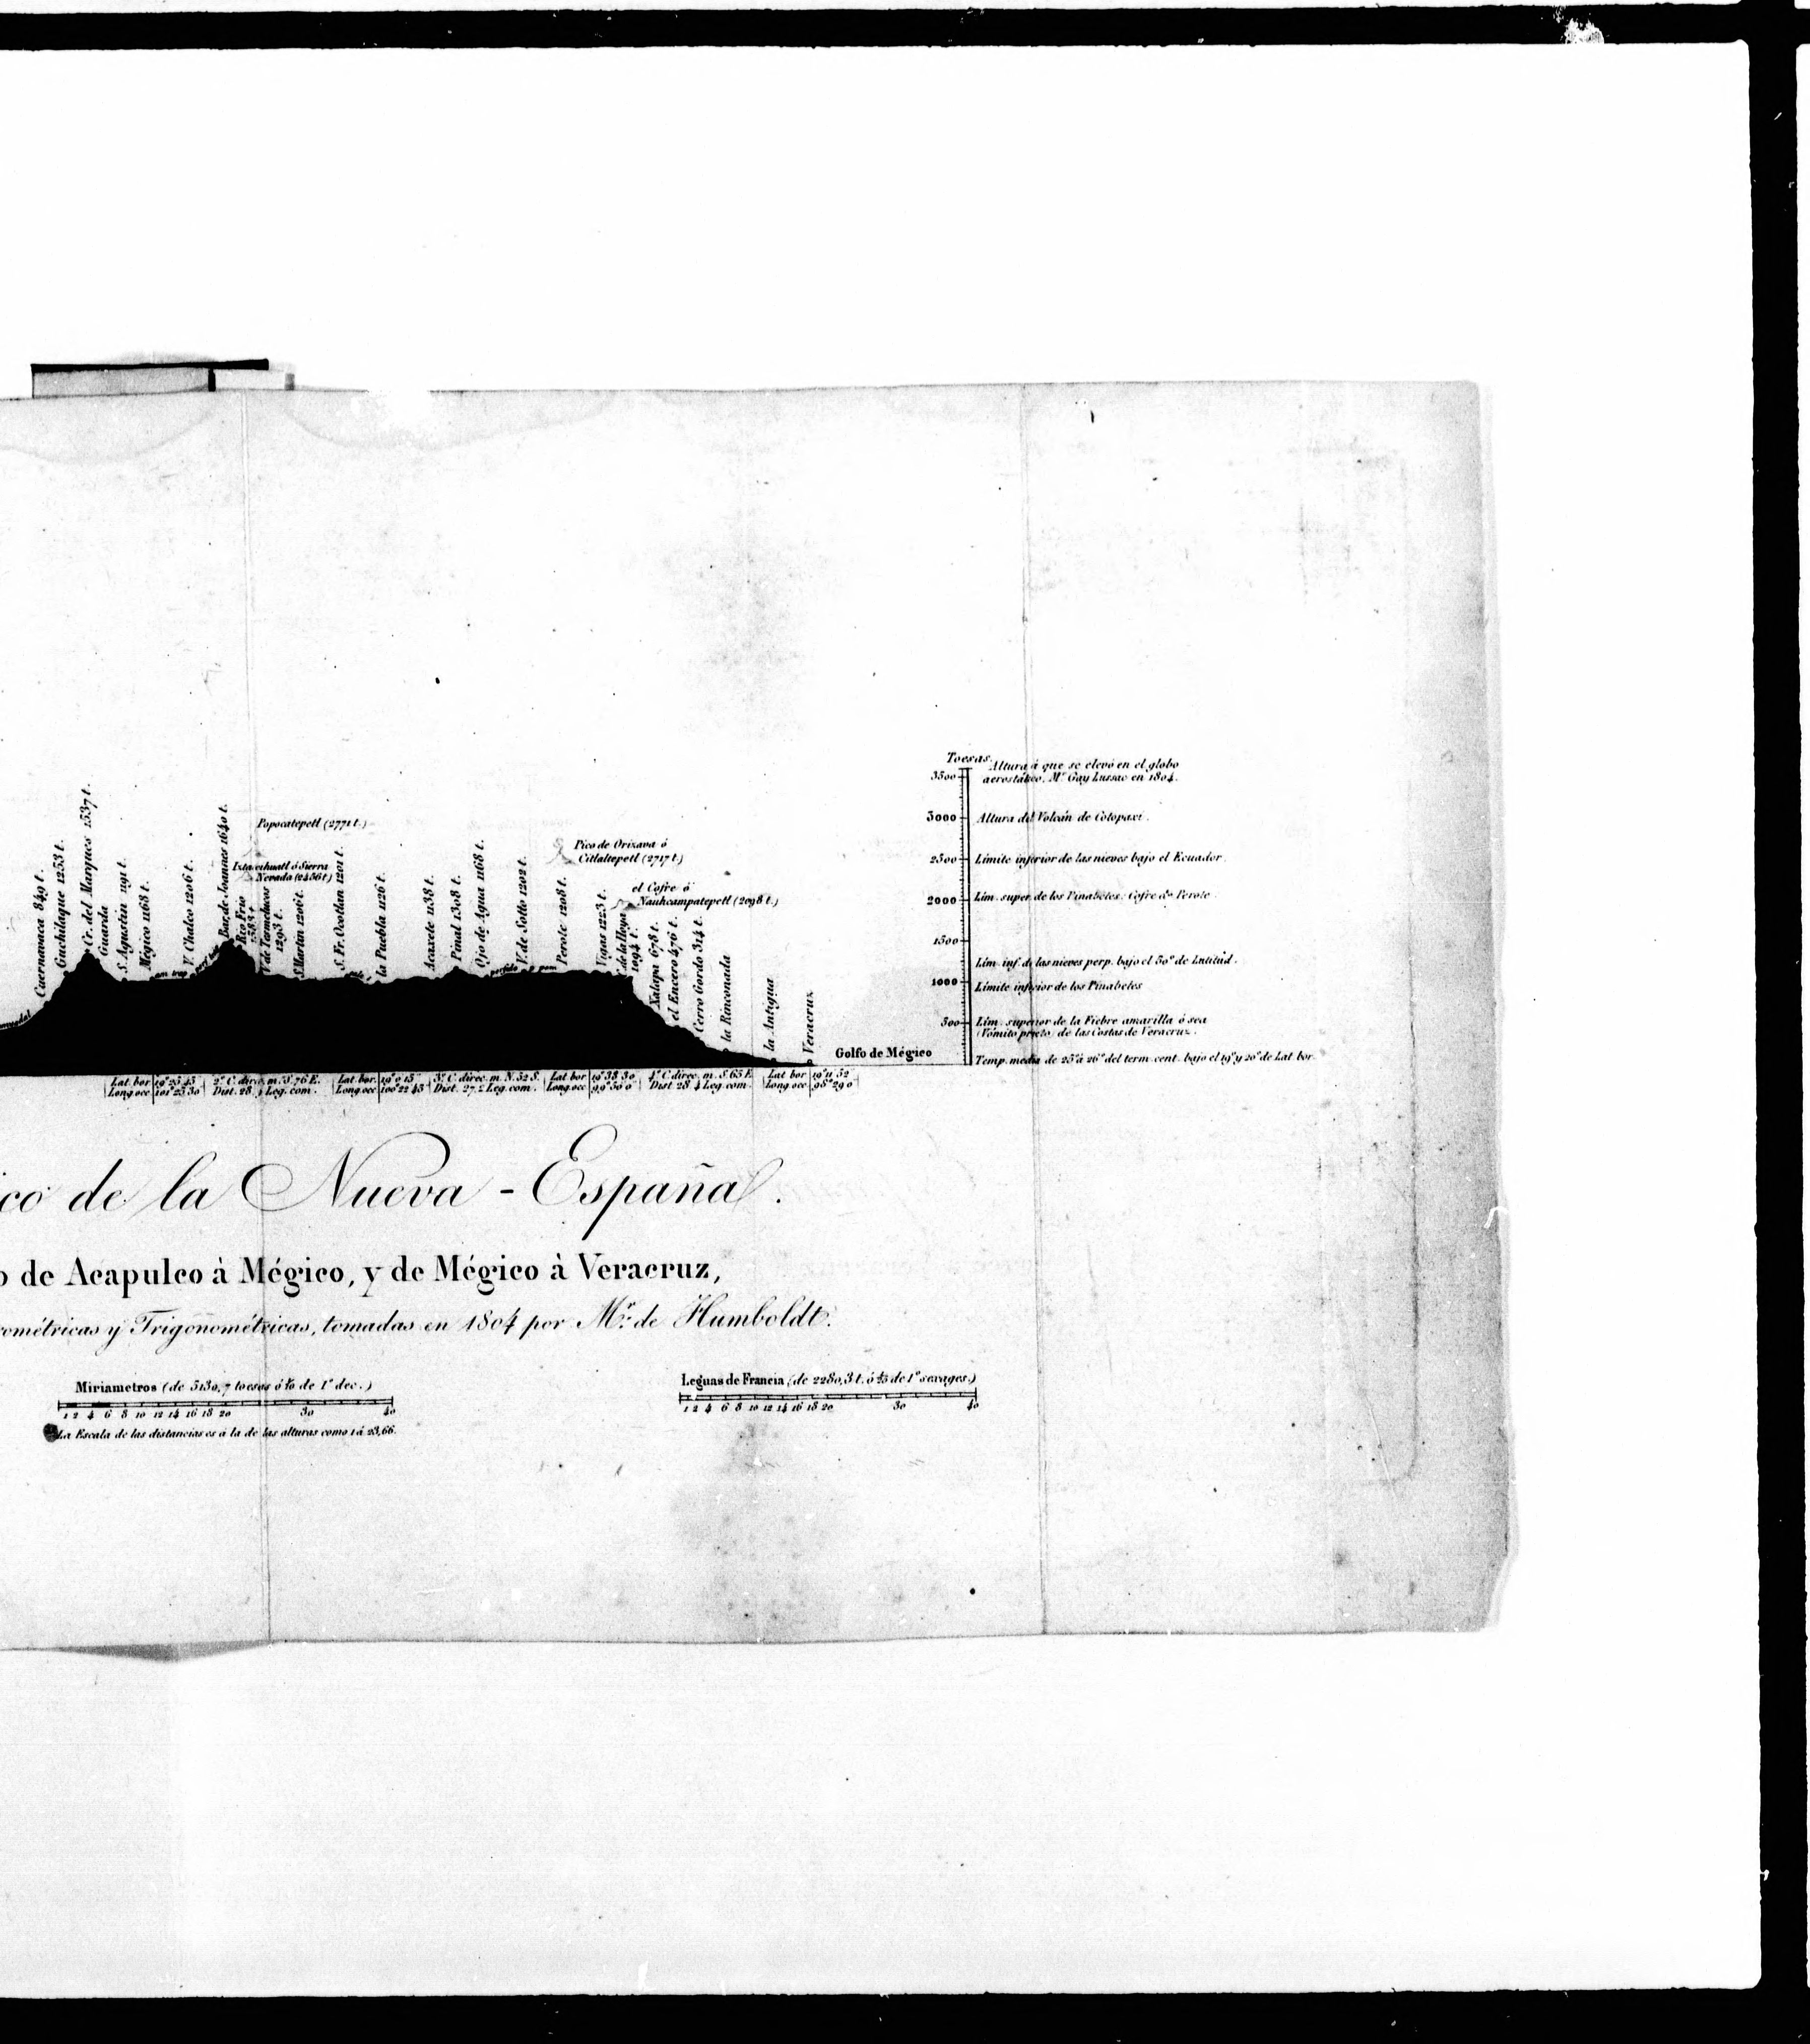 Cuernavaca 849 t.
Guchilaque 1253 t.
Cr. del Marques 1537 t.
Guarda
S. Agustin 1191 t.
Mégico 1168 t.
V. Chalco 1206 t.
Bar. de Joanes 1640 t.
Rio Frio
Popocatepetl (2771 t.)
Nevada (2456 t)
1293 t.
S. Martin 1206 t.
S. Fr. Ocotlan 1201 t.
la Puebla 1126 t.
Acaxete 1138 t.
Pinal 1308 t.
Ojo de Agua 1168 t.
V. de Sotto 1202 t.
Perote 1208 t.
Pico de Orizava ó
Citlaltepetl (2717 t.)
Vigas 1223 t.
C. de la Hoya
1094 t.
el Cofre ó
Nauhcampatepetl (2098 t.)
Xalapa 678 t.
el Encero 476 t.
Cerro Gordo 314 t.
la Rinconada
la Antigua
Veracruz
Golfo de Mégico
Toesas
3500 Altura á que se elevó en el globo
aerostático, Mr. Gay Lussac en 1804.
3000 Altura del Volcán de Cotopaxi.
2500 Límite inferior de las nieves bajo el Ecuador.
2000 Lím. super. de los Pinabetes. Cofre de Perote
1500
Lím. inf. de las nieves perp. bajo el 50º de Latitud.
1000 Límite inferior de los Pinabetes
500 Lím. superior de la Fiebre amarilla ó sea
(Vómito prieto) de las Costas de Veracruz.
Temp. media de 25º á 26º del term. cent. bajo el 19º y 20º de Lat. bor.
Lat. bor. 19º 25 45 2º C. direc. m. S. 76 E. Lat. bor. 19º 0 15 3º C. direc. m. N. 52 S. Lat. bor 19º 38 30 4º C. direc. m. S. 65 E Lat. bor 19º 11 52
Long. occ 101º 25 30 Dist. 28 Leg. com. Long. occ 100º 22 45 Dist. 27 Leg. com. Long. occ 99º 30 0 Dist 28 Leg. com. Long. occ 98º 29 0
co de la Nueva-España.
o de Acapulco à Mégico, y de Mégico à Veracruz,
ométricas y Trigonométricas, tomadas en 1804 por Mr. de Humboldt.
Miriametros (de 5130,7 toesas ó 1/10 de 1º dec.)
1 2 4 6 8 10 12 14 16 18 20 30 40
La Escala de las distancias es á la de las alturas como 1 á 23,66.
Leguas de Francia (de 2280,3 t. ó 1/25 de 1º sexages.)
1 2 4 6 8 10 12 14 16 18 20 30 40